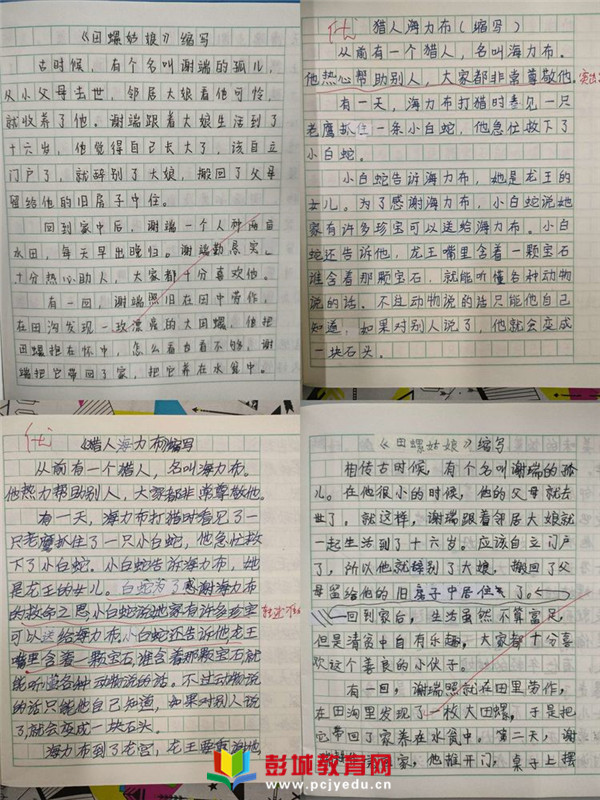 《田螺姑娘》缩写
古时候，有个名叫谢端的孤儿，
从小父母去世，邻居大娘看他可怜，
就收养了他。谢端跟着大娘生活到了
十六岁，他觉得自己长大了，该自立
门户了，就辞别了大娘，搬回了父母
留给他的旧房子中住。
回到家中后，谢端一个人种两亩
水田，每天早出晚归。谢端勤恳实、
十分热心助人，大家都十分喜欢他。
有一回，谢端照旧在田中劳作，
在田沟发现一玫漂亮的大田螺，他把
田螺抱在怀中，怎么看也看不够，谢
端把它带回了家，把它养在水瓮中。
优
猎人海力布（缩写）
从前有一个猎人，名叫海力布。
他热心帮助别人，大家都非常尊敬他。
有一天，海力布打猎时看见一只
老鹰抓住一条小白蛇，他急忙救下了
小白蛇。
小白蛇告诉海力布，她是龙王的
女儿。为了感谢海力布，小白蛇说她
家有许多珍宝可以送给海力布。小白
蛇还告诉他，龙王嘴里含着一颗宝石
谁含着那颗宝石，就能听懂各种动物
说的话。不过动物说的话只能他自己
知道，如果对别人说了，他就会变成
一块石头。
优
《猎人海力布》缩写
从前有一个猎人，名叫海力布。
他热力帮助别人，大家都非常尊敬他。
有一天，海力布打猎时看见了一
只老鹰抓住了一只小白蛇，他急忙救
下了小白蛇。小白蛇告诉海力布，她
是龙王的女儿。白蛇为了感谢海力布
的救命之恩，小白蛇说她家有许多珍宝
可以送给海力布，小白蛇还告诉他龙王
嘴里含着一颗宝石，谁含着那颗宝石就
能听懂各种动物说的话。不过动物说
的话只能他自己知道，如果对别人说
了就会变成一块石头。
海力布到了龙宫，龙王要
《田螺姑娘》缩写
相传古时候，有个名叫谢瑞的孤
儿。在他很小的时候，他的父母就去
世了。就这样，谢瑞跟着邻居大娘就
一起生活到了十六岁。应该自立门户
了，所以他就辞别了大娘，搬回了父
母留给他的旧房子中居住了。
回到家后，生活虽然不算富足，
但是清贫中自有乐趣，大家都十分喜
欢这个善良的小伙子。
有一回，谢瑞照就在田里劳作，
在田沟里发现了一枚大田螺，于是把
它带回了家养在水瓮中，第二天，谢
家，他推开门，桌子上摆
彭城教育网
www.pcjyedu.cn